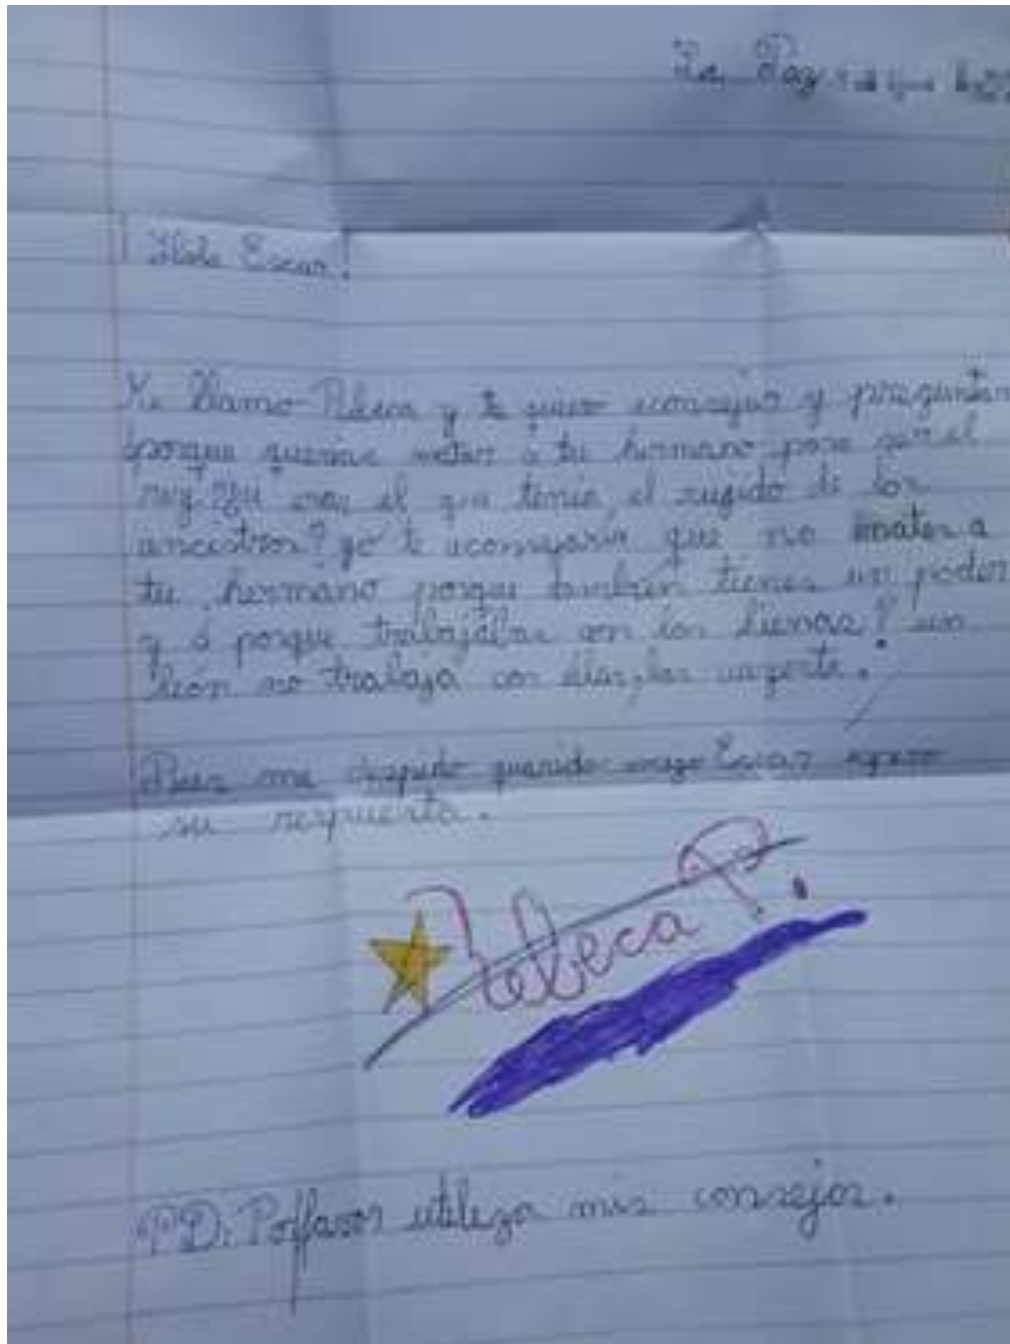 La Paz
¡ Hola Escar!
Me llamo Rebeca y te quiero aconsejar y preguntar
¿porque querias matar a tu hermano para ser el
rey? eras el que tenia el rugido de los
ancestros? yo te aconsejaria que no mates a
tu hermano porque también tienes un poder
y ¿ porque trabajabas con las hienas? un
león no trabaja con ellas, las
Pues me despido querido amigo Escar espero
su respuesta.
Rebeca P.
PD: Porffavor utiliza mis consejos.